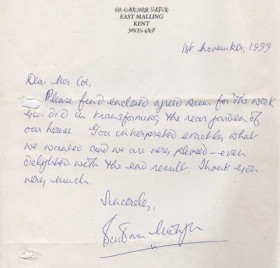 EAST MALLING
KENT
1st November, 1999
Dear Mr Coe,
Please find enclosed agreed sum for the work
you did in transforming the rear garden of
our house. You interpreted exactly what
we wanted and we are very pleased – even
delighted with the end result. Thank you
very much.
Sincerely,